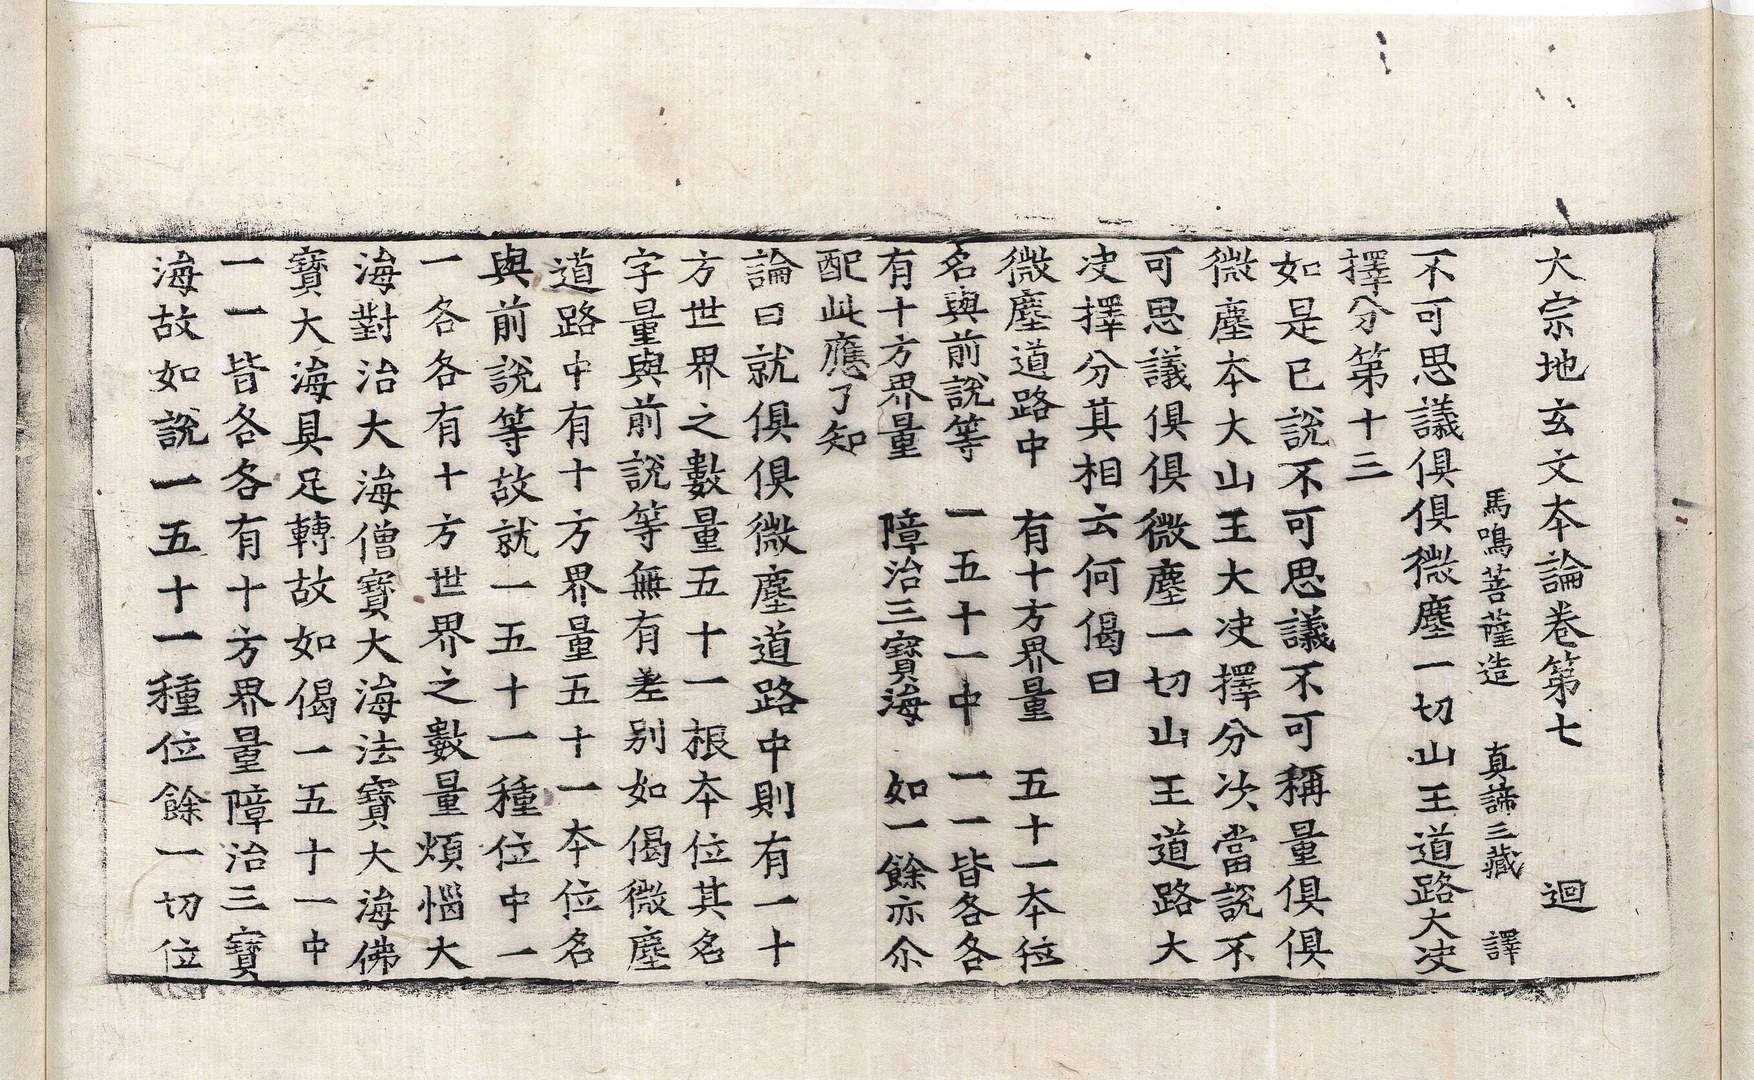 大宗地玄文夲論卷第七　迴
馬鳴菩薩造　真諦三藏　譯
不可思議俱俱微塵一切山王道路大决
擇分第十三
如是已說不可思議不可稱量俱俱
微塵夲大山王大决擇分次當說不
可思議俱俱微塵一切山王道路大
决擇分其相云何偈曰
微塵道路中　有十方界量　五十一夲位
名與前說等　一五十一中　一一皆各各
有十方界量　障治三寶海　如一餘亦尒
配此應了知
論曰就俱俱微塵道路中則有一十
方世界之數量五十一根夲位其名
字量與前說等無有差别如偈微塵
道路中有十方界量五十一夲位名
與前說等故就一五十一種位中一
一各各有十方世界之數量煩惱大
海對治大海僧寶大海法寶大海佛
寶大海具足轉故如偈一五十一中
一一皆各各有十方界量障治三寶
海故如說一五十一種位餘一切位